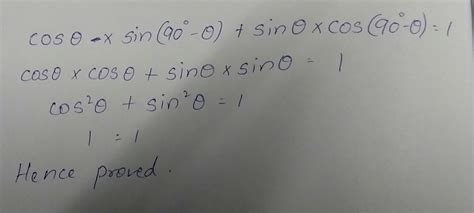 cosθ × sin(90°-θ) + sinθ × cos(90°-θ) = 1
cosθ × cosθ + sinθ × sinθ = 1
cos²θ + sin²θ = 1
1 = 1
Hence proved.